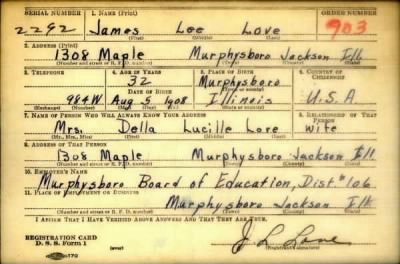 SERIAL NUMBER 1. NAME (Print) ORDER NUMBER
2292 James Lee Love 903
(First) (Middle) (Last)
2. ADDRESS (Print)
1308 Maple Murphysboro Jackson Ill
(Number and street or R. F. D. number) (Town) (County) (State)
3. TELEPHONE 4. AGE IN YEARS 5. PLACE OF BIRTH 6. COUNTRY OF CITIZENSHIP
32 Murphysboro
DATE OF BIRTH (Town or county)
984W Aug 5 1908 Illinois U.S.A
(Exchange) (Number) (Mo.) (Day) (Yr.) (State or country)
7. NAME OF PERSON WHO WILL ALWAYS KNOW YOUR ADDRESS 8. RELATIONSHIP OF THAT PERSON
Mrs. Della Lucille Love wife
(Mr., Mrs., Miss) (First) (Middle) (Last)
9. ADDRESS OF THAT PERSON
1308 Maple Murphysboro Jackson Ill
(Number and street or R. F. D. number) (Town) (County) (State)
10. EMPLOYER'S NAME
Murphysboro Board of Education, Dist. #186
11. PLACE OF EMPLOYMENT OR BUSINESS
Murphysboro Jackson Ill
(Number and street or R. F. D. number) (Town) (County) (State)
I AFFIRM THAT I HAVE VERIFIED ABOVE ANSWERS AND THAT THEY ARE TRUE.
REGISTRATION CARD
D. S. S. Form 1 J L Love
(over) (Registrant's signature)